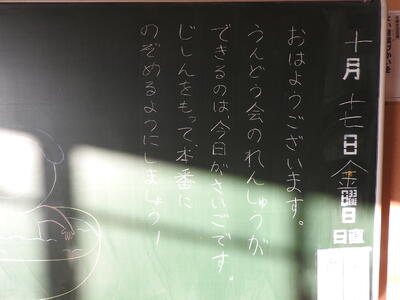 十月十七日金曜日
日直
おはようございます。
うんどう会のれんしゅうが
できるのは、今日がさいごです。
じしんをもって、本番に
のぞめるようにしましょう！